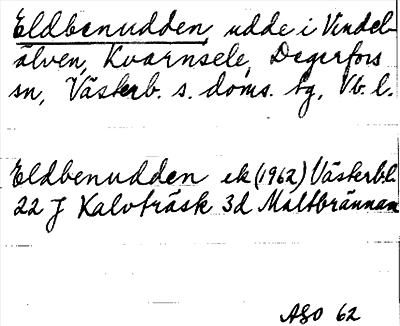 Eldbenudden, udde i Vindel-
älven, Kvarnsele, Degerfors
sn, Västerb. s. doms. tg, Vb. l.
Eldbenudden ek (1962) Västerbl.
22 J Kalvträsk 3d Maltbrännan
ASO 62